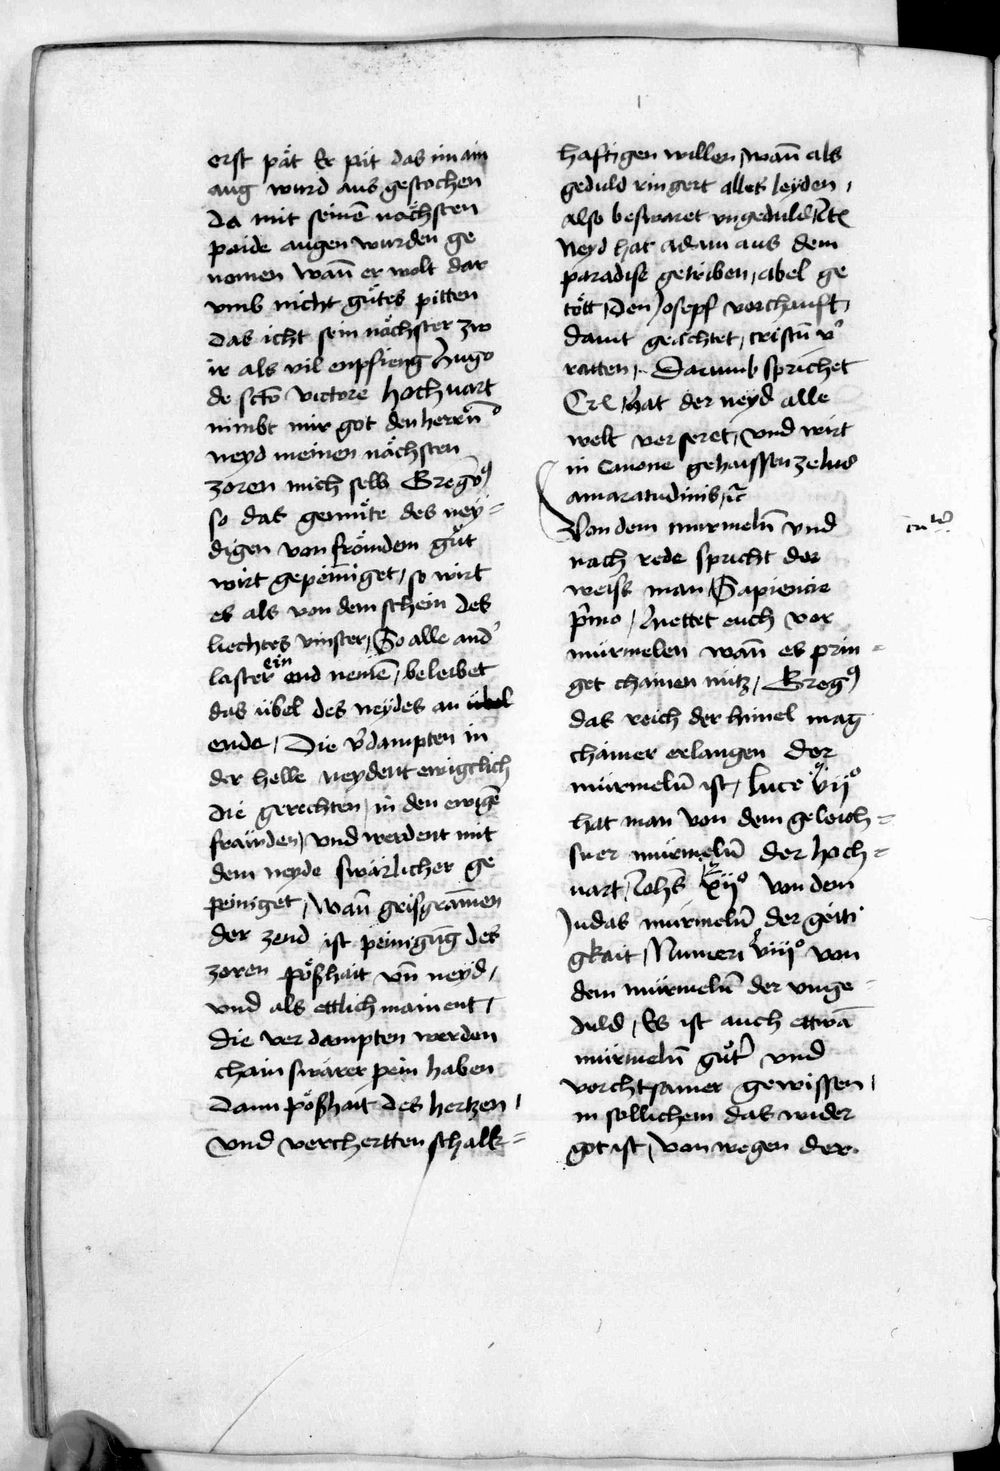 erst pät Er pit das im ain
aug wurd aus gestochen
da mit seinē nächsten
paide augen wurden ge
nomen wañ er wolt dar
vmb nicht gůtes pitten
das icht sein nächster zw
ir als vil enpfieng Hugo
de scto victore Hochuart
nimbt mir got den herrñ
neyd meinen nächsten
zoren mich selb Grego⁹
so das gemüte des ney=
digen von frömdem gůt
wirt gepeiniget, so wirt
es als von dem schein des
liechtes vinster, So alle and'
laster ein end nemē, beleibet
das übel des neydes an
ende, Die v'dampten in
der helle neydent ewigclich
die gerechten, in den ewigē
fräwden, vnd werdent mit
dem neyde swärlicher ge
peiniget, wañ grisgramen
der zend ist peinigūg des
zoren pößhait vñ neyd,
vnd als ettlich mainent,
die verdampten werden
chain swärer pein haben
dann pößhait des hertzen,
vnd verchertten schalk=
haftigen willen, wañ als
geduld ringert alles leyden,
also beswaret vngeduld,
Neyd hat adam aus dem
paradise getriben, abel ge
tött, den Josepf verchauft,
dauit geächtet, cristū v'
ratten, Darumb sprichet
hat der neyd alle
welt verseret, vnd wirt
in Canone gehaissen zelus
amaratudinis, ic̄
Von dem murmelñ vnd
nach rede spricht der
weiss man Sapiencie
p'mo, Huettet euch vor
mürmelen wañ es prin=
get chainen nütz, Greg⁹
das reich der himel mag
chainer erlangen der
mürmelñ ist, luce vijº
hat man von dem geleich=
sner mürmelñ der hoch=
uart, Joh's xijº von dem
Judas mürmelñ der geiti
gkait, Numeri viijº von
dem mürmelñ der vnge=
duld, Es ist auch ettwā
mürmelñ gůt' vnd
vorchtsamer gewissen,
in sollichem das wider
got ist, von wegen der